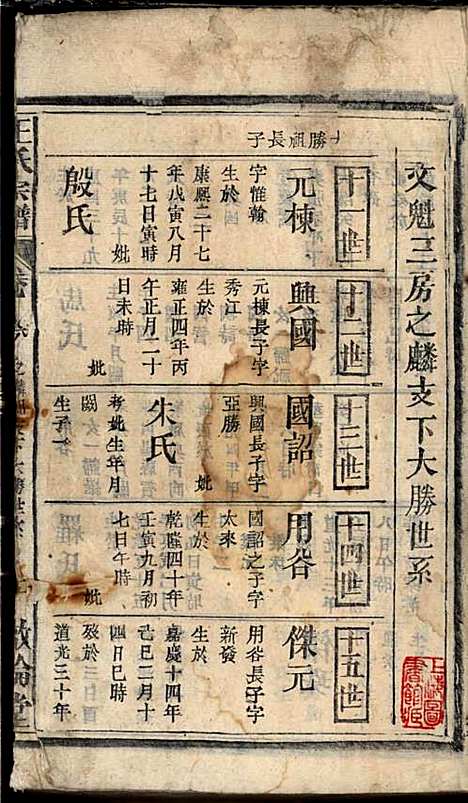 文魁三房之麟支下大勝世系
十勝祖長子
十一世
元棟
字惟翰
生於
康熙二十七
年戊寅八月
十七日寅時
妣
殷氏
十二世
興國
元棟長子字
秀江
生於
雍正四年丙
午正月二十
日未時
妣
十三世
國詔
興國長子字
亞勝
妣
朱氏
考妣生年月
闕
生子一
十四世
用谷
國詔之子字
太來
生於
乾隆四十年
壬寅九月初
七日午時
妣
十五世
傑元
用谷長子字
新發
生於
嘉慶十四年
己巳二月十
四日巳時
歿於
道光三十年
王氏宗譜
敦倫堂
上海圖
書館藏